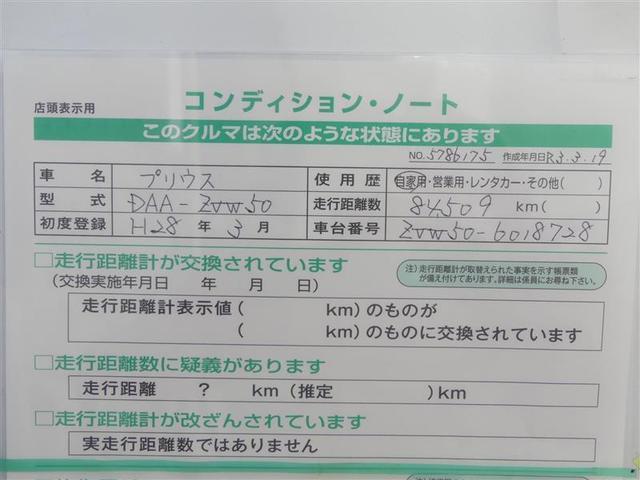 店頭表示用
コンディション・ノート
このクルマは次のような状態にあります
NO.5786175 作成年月日R3.3.19
車名 プリウス 使用歴 自家用・営業用・レンタカー・その他( )
型式 DAA-ZVW50 走行距離数 84,509 km( )
初度登録 H28 年 3 月 車台番号 ZVW50-6018728
□走行距離計が交換されています
(交換実施年月日 年 月 日)
注)走行距離計が取替えられた事実を示す帳票類
が備え付けてあります。詳細は係員にお尋ね下さい。
走行距離計表示値( km)のものが
( km)のものに交換されています
□走行距離数に疑義があります
走行距離 ? km(推定 )km
□走行距離計が改ざんされています
実走行距離数ではありません